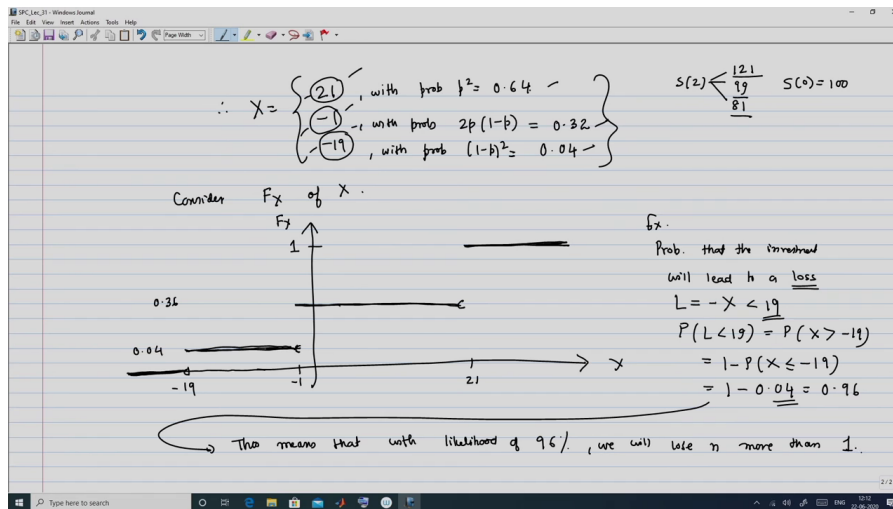 SPC_Lec_31 - Windows Journal
File Edit View Insert Actions Tools Help
Page Width
∴ X = { 21, with prob p² = 0.64
-1, with prob 2p(1-p) = 0.32
-19, with prob (1-p)² = 0.04 }
S(2) < 121
99
81
S(0) = 100
Consider Fx of X.
Fx
1
0.36
0.04
-19 -1 21 X
Ex.
Prob. that the investment
will lead to a loss
L = -X < 19
P(L<19) = P(X>-19)
= 1-P(X≤-19)
= 1-0.04 = 0.96
This means that with likelihood of 96%, we will lose n more than 1.
2/2
Type here to search
ENG
12:12
22-06-2020